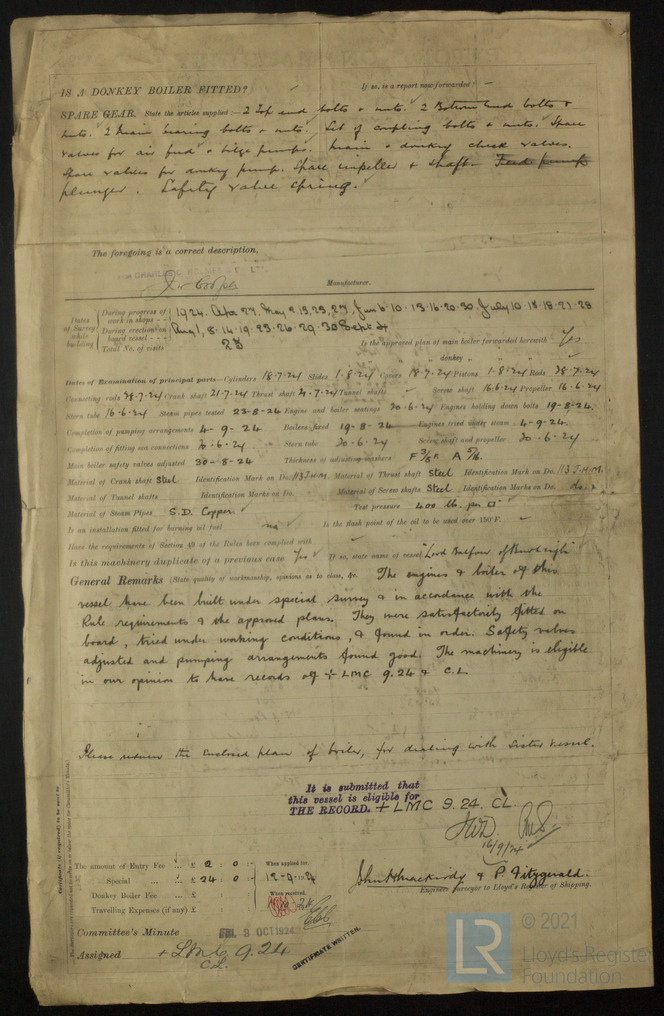 IS A DONKEY BOILER FITTED? If so, is a report now forwarded? -
SPARE GEAR. State the articles supplied:- 2 Top end bolts & nuts. 2 Bottom end bolts &
nuts. 2 Main bearing bolts & nuts. Set of coupling bolts & nuts. Spare
valves for air feed & bilge pumps. Main & donkey check valves.
Spare valves for donkey pump. Spare impeller & shaft. Feed pump
plunger. Safety valve spring.
The foregoing is a correct description,
FOR CHARLES
Manufacturer.
Dates of Survey while building
During progress of work in shops - - 1924. Apr 27, May 2.13.23.27, Jun 6.10.13.16.20.30. July 10.18.21.28
During erection on board vessel - - - Aug 1, 8.14.19.23.26.29.30 Sept 4
Total No. of visits 23 Is the approved plan of main boiler forwarded herewith Yes
" " " donkey " " "
Dates of Examination of principal parts—Cylinders 18.7.24 Slides 1.8.24 Covers 18.7.24 Pistons 1.8.24 Rods 28.7.24
Connecting rods 28.7.24 Crank shaft 21.7.24 Thrust shaft 21.7.24 Tunnel shafts Screw shaft 16.6.24 Propeller 16.6.24
Stern tube 16.6.24 Steam pipes tested 22-8-24 Engine and boiler seatings 20.6.24 Engines holding down bolts 19-8-24.
Completion of pumping arrangements 4-9-24. Boilers fixed 19-8-24 Engines tried under steam 4-9-24.
Completion of fitting sea connections 20.6.24 Stern tube 20.6.24 Screw shaft and propeller 20.6.24
Main boiler safety valves adjusted 30-8-24 Thickness of adjusting washers F 3/8 A 5/16.
Material of Crank shaft Steel Identification Mark on Do. 113 J.H.M. Material of Thrust shaft Steel Identification Mark on Do. 113 J.H.M.
Material of Tunnel shafts Identification Marks on Do. Material of Screw shafts Steel Identification Marks on Do. do
Material of Steam Pipes S.D. Copper. Test pressure 400 lb. per □"
Is an installation fitted for burning oil fuel no Is the flash point of the oil to be used over 150°F.
Have the requirements of Section 49 of the Rules been complied with
Is this machinery duplicate of a previous case Yes If so, state name of vessel "Lord Balfour of Burleigh"
General Remarks (State quality of workmanship, opinions as to class, &c. The engines & boiler of this
vessel have been built under special survey & in accordance with the
Rule requirements & the approved plans. They were satisfactorily fitted on
board, tried under working conditions, & found in order. Safety valves
adjusted and pumping arrangements found good. The machinery is eligible
in our opinion to have records of + LMC 9.24 & C.L.
Please return the enclosed plan of boiler, for dealing with sister vessel.
It is submitted that
this vessel is eligible for
THE RECORD. + LMC 9.24. CL.
16/9/24
The amount of Entry Fee .. £ 2 : 0 : When applied for,
Special ... £ 24 : 0 : 12-9-1924
Donkey Boiler Fee ... £ : : When received,
Travelling Expenses (if any) £ : :
& P. Fitzgerald.
Engineer Surveyor to Lloyd's Register of Shipping.
Committee's Minute FRI. 3 OCT 1924
Assigned + LMC 9.24
C.L.
CERTIFICATE WRITTEN.
LR
© 2021
Lloyd's Register
Foundation